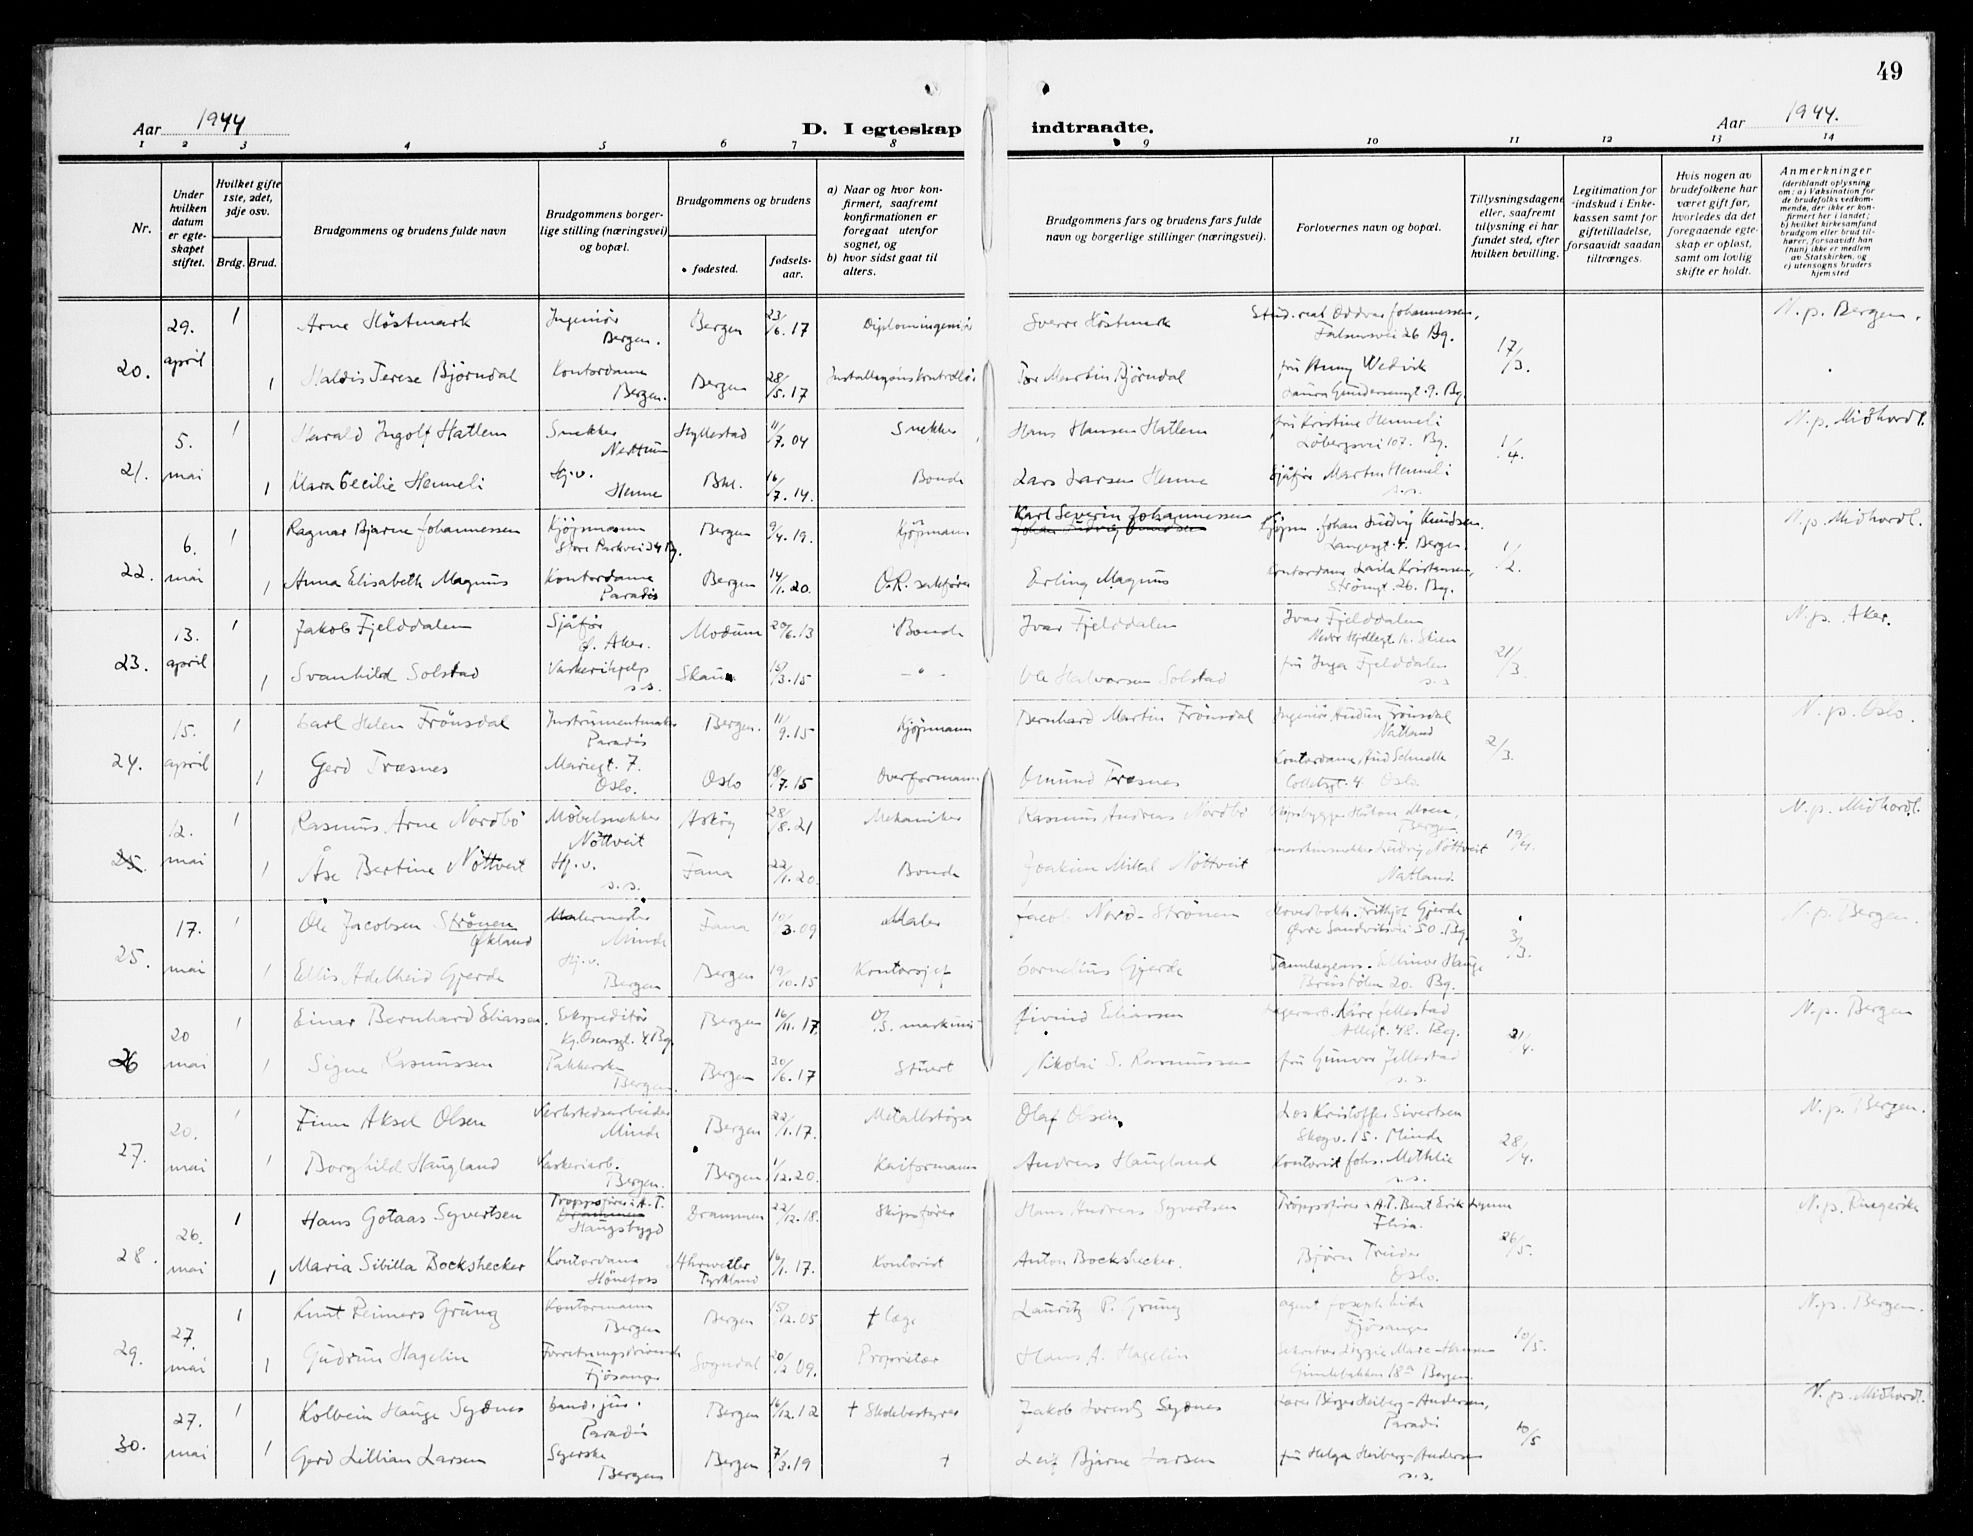 49
Aar 1944
D. I egteskap indtraadte.
Aar 1944.
1 2 3 4 5 6 7 8 9 10 11 12 13 14
Nr.
Under
hvilken
datum
er egte-
skapet
stiftet.
Hvilket gifte
1ste, 2det,
3dje osv.
Brdg. Brud.
Brudgommens og brudens fulde navn
Brudgommens borger-
lige stilling (næringsvei)
og bopæl.
Brudgommens og brudens
fødested.
fødsels-
aar.
a) Naar og hvor kon-
firmert, saafremt
konfirmationen er
foregaat utenfor
sognet, og
b) hvor sidst gaat til
alters.
Brudgommens fars og brudens fars fulde
navn og borgerlige stillinger (næringsvei).
Forlovernes navn og bopæl.
Tillysningsdagene
eller, saafremt
tillysning ei har
fundet sted, efter
hvilken bevilling.
Legitimation for
indskud i Enke-
kassen samt for
giftetilladelse,
forsaavidt saadan
tiltrænges.
Hvis nogen av
brudefolkene har
været gift før,
hvorledes da det
foregaaende egte-
skap er opløst,
samt om lovlig
skifte er holdt.
Anmerkninger
(deriblandt oplysning
om: a) Vaksination for
de brudefolks vedkom-
mende, der ikke er kon-
firmert her i landet;
b) hvilket kirkesamfund
brudgom eller brud til-
hører, forsaavidt han
(hun) ikke er medlem
av Statskirken, og
c) utensogns bruders
hjemsted
20. 29. april
1 Arne Höstmark Ingeniör Bergen. Bergen 23/6.17 Diplomingeniör Sverre Höstmark Stud. real Oddvar Johannessen, 26 Bg. 17/3. N.p. Bergen.
1 Haldis Terese Björndal Kontordame Bergen. Bergen 28/5.17 Tor Martin Björndal fru Anny Wedvik Laura Gundersensgt. 9. Bg.
21. 5. mai
1 Harald Ingolf Hatlem Snekker Nesttun Hyllestad 11/7.04 Snekker Hans Hansen Hatlem fru Kristine Henneli Löbergsvei 107. Bg. 1/4. N.p. Midhordl.
1 Mara Cecilie Henneli Hj.v. Henne Bhl. 16/7.14. Bonde Lars Larsen Henne Sjåför Martin Henneli s.s.
22. 6. mai
1 Ragnar Bjarne Johannessen Kjöpmann Store Parkvei 24 Bg. Bergen 9/4.19. Kjöpmann Karl Severin Johannessen Kjöpm. Johan Ludvig Knudsen. Langesgt. 4. Bergen. 1/2. N.p. Midhordl.
1 Anna Elisabeth Magnus Kontordame Paradis Bergen 14/1.20. O.R. sakförer Erling Magnus Kontordame Laila Kristensen, Strömgt. 26. Bg.
23. 13. april
1 Jakob Fjelddalen Sjåför ö. Aker. Modum 20/6.13 Bonde Ivar Fjelddalen Ivar Fjelddalen Skien 21/3. N.p. Aker.
1 Svanhild Solstad Vaskerihjelp s.s. Skaun 15/3.15 — " - Ole Halvorsen Solstad fru Inga Fjelddalen s.s
24. 15. april
1 Carl Helen Frönsdal Instrumentmaker Paradis Bergen. 11/9.15 Kjöpmann Bernhard Martin Frönsdal Ingeniör Audun Frönsdal Natland 2/3. N.p. Oslo.
1 Gerd Træsnes Mariegt. 7. Oslo. Oslo 18/7.15 Overformann Omund Træsnes Kontordame Aud Schmelk Colletsgt. 4 Oslo.
25. 12. mai
1 Rasmus Arne Nordbö Möbelsnekker Nöttveit Asköy 28/8.21 Mekaniker Rasmus Andreas Nordbö Skipsbygger Håkon Moen, Bergen 19/4. N.p. Midhordl.
1 Åse Bertine Nöttveit Hj.v. s.s. Fana 22/1.20. Bonde Joakim Mikal Nöttveit Ludvig Nöttveit Natland.
25. 17. mai
1 Ole Jacobsen Strönen Ökland Malermester Minde Fana 10/3.09 Maler Jacob Nord-Strönen Hovedbokh. Frithjof Gjerde Övre Sandviksvei 50. Bg. 3/3. N.p. Bergen.
1 Ellis Adelheid Gjerde Hj.v. Bergen Bergen 19/10.15 Kontorsjef Cornelius Gjerde Tannlegeass. Ellinor Hauge 20. Bg.
26 20 mai
1 Einar Bernhard Eliassen. Ekspeditör Kg. Oscarsgt. 4. Bg. Bergen 16/11.17. Öivind Eliassen Lagerarb. Kåre Jellestad Allegt. 48. Bg. 21/4. N.p. Bergen
1 Signe Rasmussen Pakkerske Bergen. Bergen 30/6.17 Stuert Nikolai S. Rasmussen fru Gunvor Jellestad s.s.
27. 20. mai
1 Finn Aksel Olsen Verkstedsarbeider Minde Bergen 22/1.17. Metallstöper Olaf Olsen Los Kristoffer Sivertsen Skogv. 15. Minde 28/4. N.p. Bergen.
1 Borghild Haugland Vaskeriarb. Bergen. Bergen 1/12.20. Kaiformann Andreas Haugland Kontorist Johs. Methlie s.s.
28. 26. mai
1 Hans Götaas Syvertsen Troppsförer i A.T. Drammen Haugsbygd Drammen 22/12.18. Skipsförer Hans Andreas Syvertsen Troppsförer i A.T. Bent Erik Flisa. 26/5. N.p. Ringerike
1 Maria Sibilla Bockshecker Kontordame Hönefoss Ahrweiler Tyskland 16/1.17. Kontorist Anton Bockshecker. Björn Oslo.
29. 27. mai
1 Knut Reimers Grung Kontormann Bergen Bergen 15/12.05 † læge Lauritz P. Grung agent Joseph Eide Fjösanger 10/5. N.p. Bergen.
1 Gudrun Hagelin Forretningsdrivende Fjösanger Sogndal 20/2 09. Proprietær Hans A. Hagelin sekretær Lizzie Marie Hansen 18a Bergen.
30. 27. mai
1 Kolbein Hauge Sydnes cand. jur. Paradis Bergen 16/12.12 † Skolebestyrer Jakob Lorentz Sydnes Lærer Birger Heiberg-Andersen, Paradis 10/5 N.p. Midhordl.
1 Gerd Lillian Larsen Syerske Bergen Bergen 7/3.19 † Leif Bjarne Larsen fru Helga Heiberg-Andersen s.s.